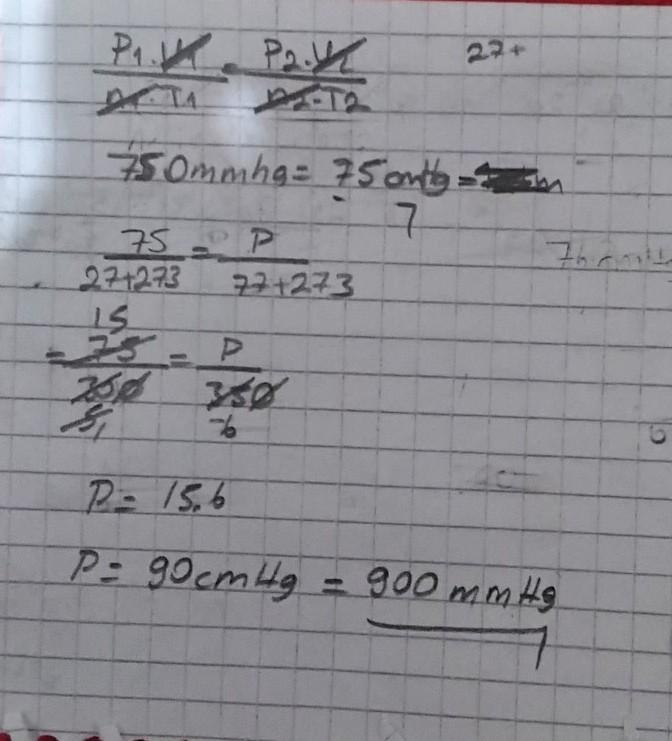 P1.V1 / n1.T1 = P2.V2 / n2.T2 27+
750mmhg = 75cmHg = m
7
75 / 27+273 = P / 77+273
15
= 75 / 250 = P / 350
5, 6
P = 15.6
P = 90cmHg = 900 mmHg